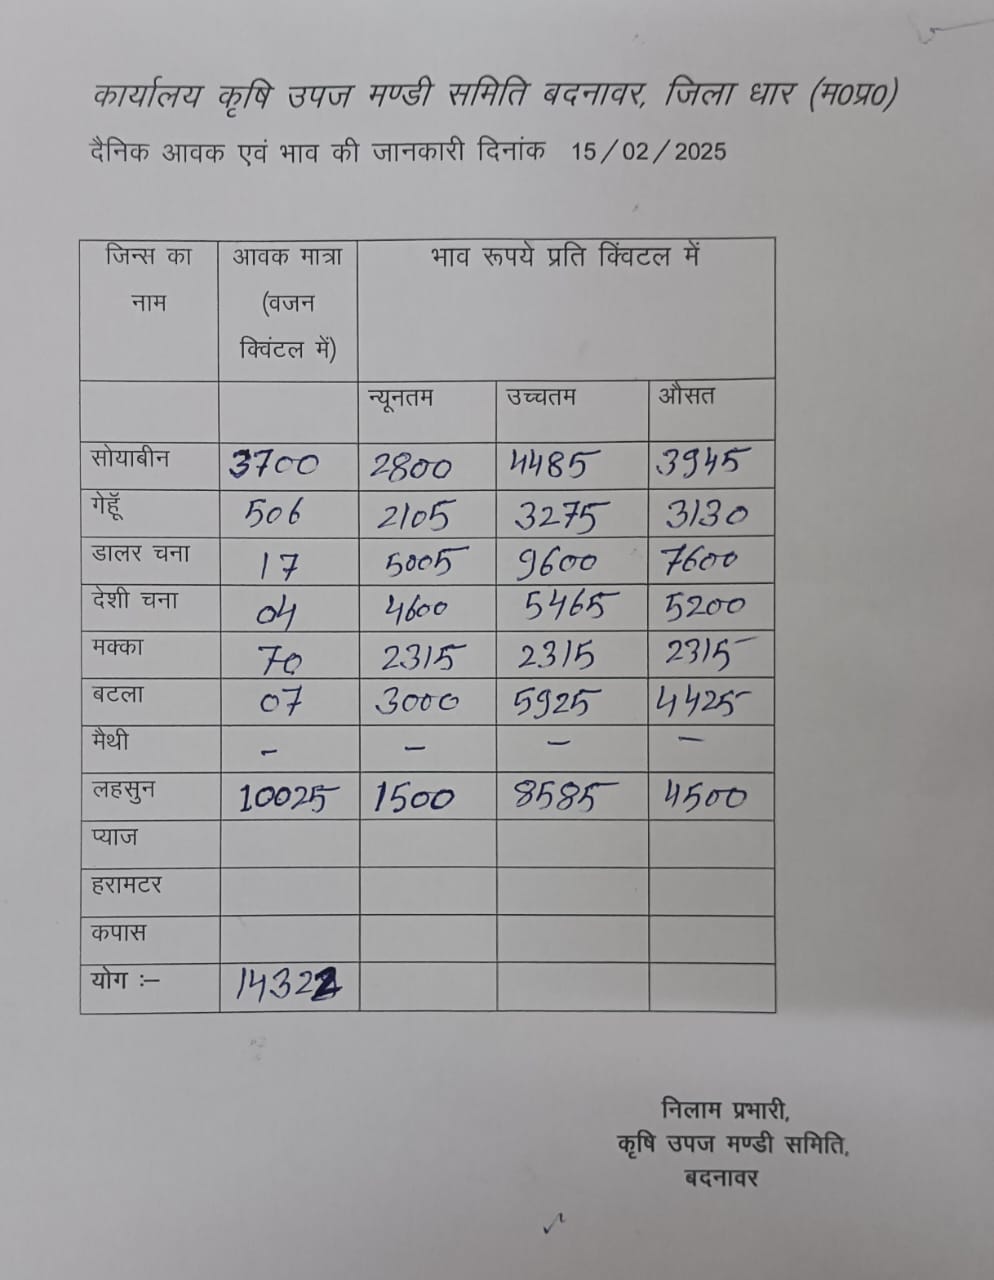 कार्यालय कृषि उपज मण्डी समिति बदनावर, जिला धार (म0प्र0)
दैनिक आवक एवं भाव की जानकारी दिनांक 15/02/2025
जिन्स का नाम आवक मात्रा (वजन क्विंटल में) भाव रूपये प्रति क्विंटल में
न्यूनतम उच्चतम औसत
सोयाबीन 3700 2800 4485 3945
गेहूॅ 506 2105 3275 3130
डालर चना 17 5005 9600 7600
देशी चना 04 4600 5465 5200
मक्का 70 2315 2315 2315
बटला 07 3000 5925 4425
मैथी - - - -
लहसुन 10025 1500 8585 4500
प्याज
हरामटर
कपास
योग :– 14322
निलाम प्रभारी,
कृषि उपज मण्डी समिति,
बदनावर